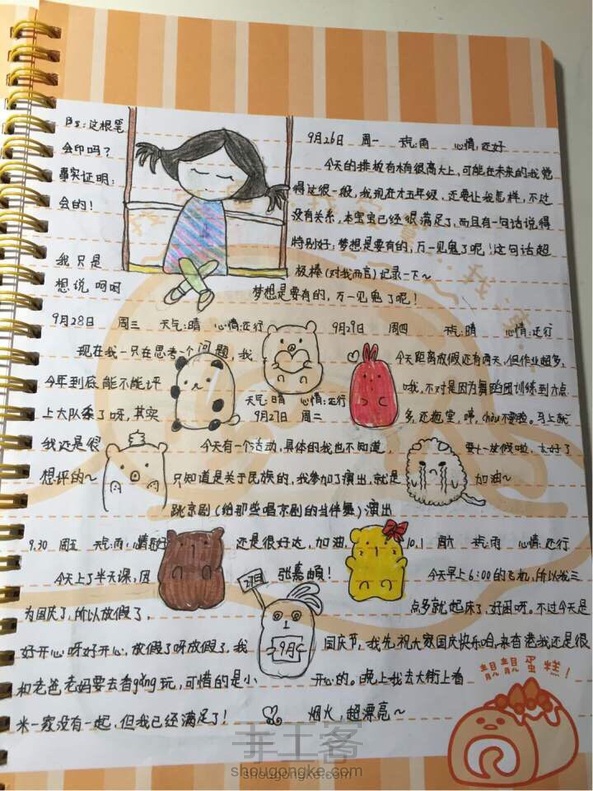 Bs:这根笔
会印吗?
事实证明:
会的!
我只是
想说,呵呵
9月26日 周一 天气:雨 心情:还好
今天的排版有木有很高大上,可能在未来的我觉
得这很一般,我现在才五年级,还要让我怎样,不过
没有关系,本宝宝已经很满足了,而且有一句话说得
特别好:梦想是要有的,万一见鬼了呢!这句话超
极棒(对我而言)记录一下~
梦想是要有的,万一见鬼了呢!
9月28日 周三 天气:晴 心情:还行
现在我一只在思考一个问题,我
今年到底能不能评
上大队委了呀,其实
我还是很
想评的~
9月29日 周四 天气:晴 心情:还行
今天距离放假还有两天,但作业超多,
哦,不对是因为舞蹈团训练到六点
多,还拖堂,哼,chǒu不要脸。马上就
要十一放假啦,太好了
加油~
天气:晴 心情:还行
9月27日 周二
今天有一个活动,具体的我也不知道,
只知道是关于民族的,我参加了演出,就是
跳京剧(给那些唱京剧的生伴舞)演出
还是很好达,加油,
张嘉頔!
9.30 周五 天气:雨
今天上了半天课,因
为国庆了,所以放假了,
好开心呀好开心,放假了呀放假了,我
和老爸老妈要去香gǎng玩,可惜的是小
米一家没有一起,但我已经满足了!
9月
10.1 周六 天气:雨 心情:还行
今天早上6:00的飞机,所以我三
点多就起床了,好困呀,不过今天是
国庆节,我先祝大家国庆快乐哈,来香港我还是很
开心的。晚上我去大街上看
烟火,超漂亮~
蛋糕!
手工客
shougongke.com